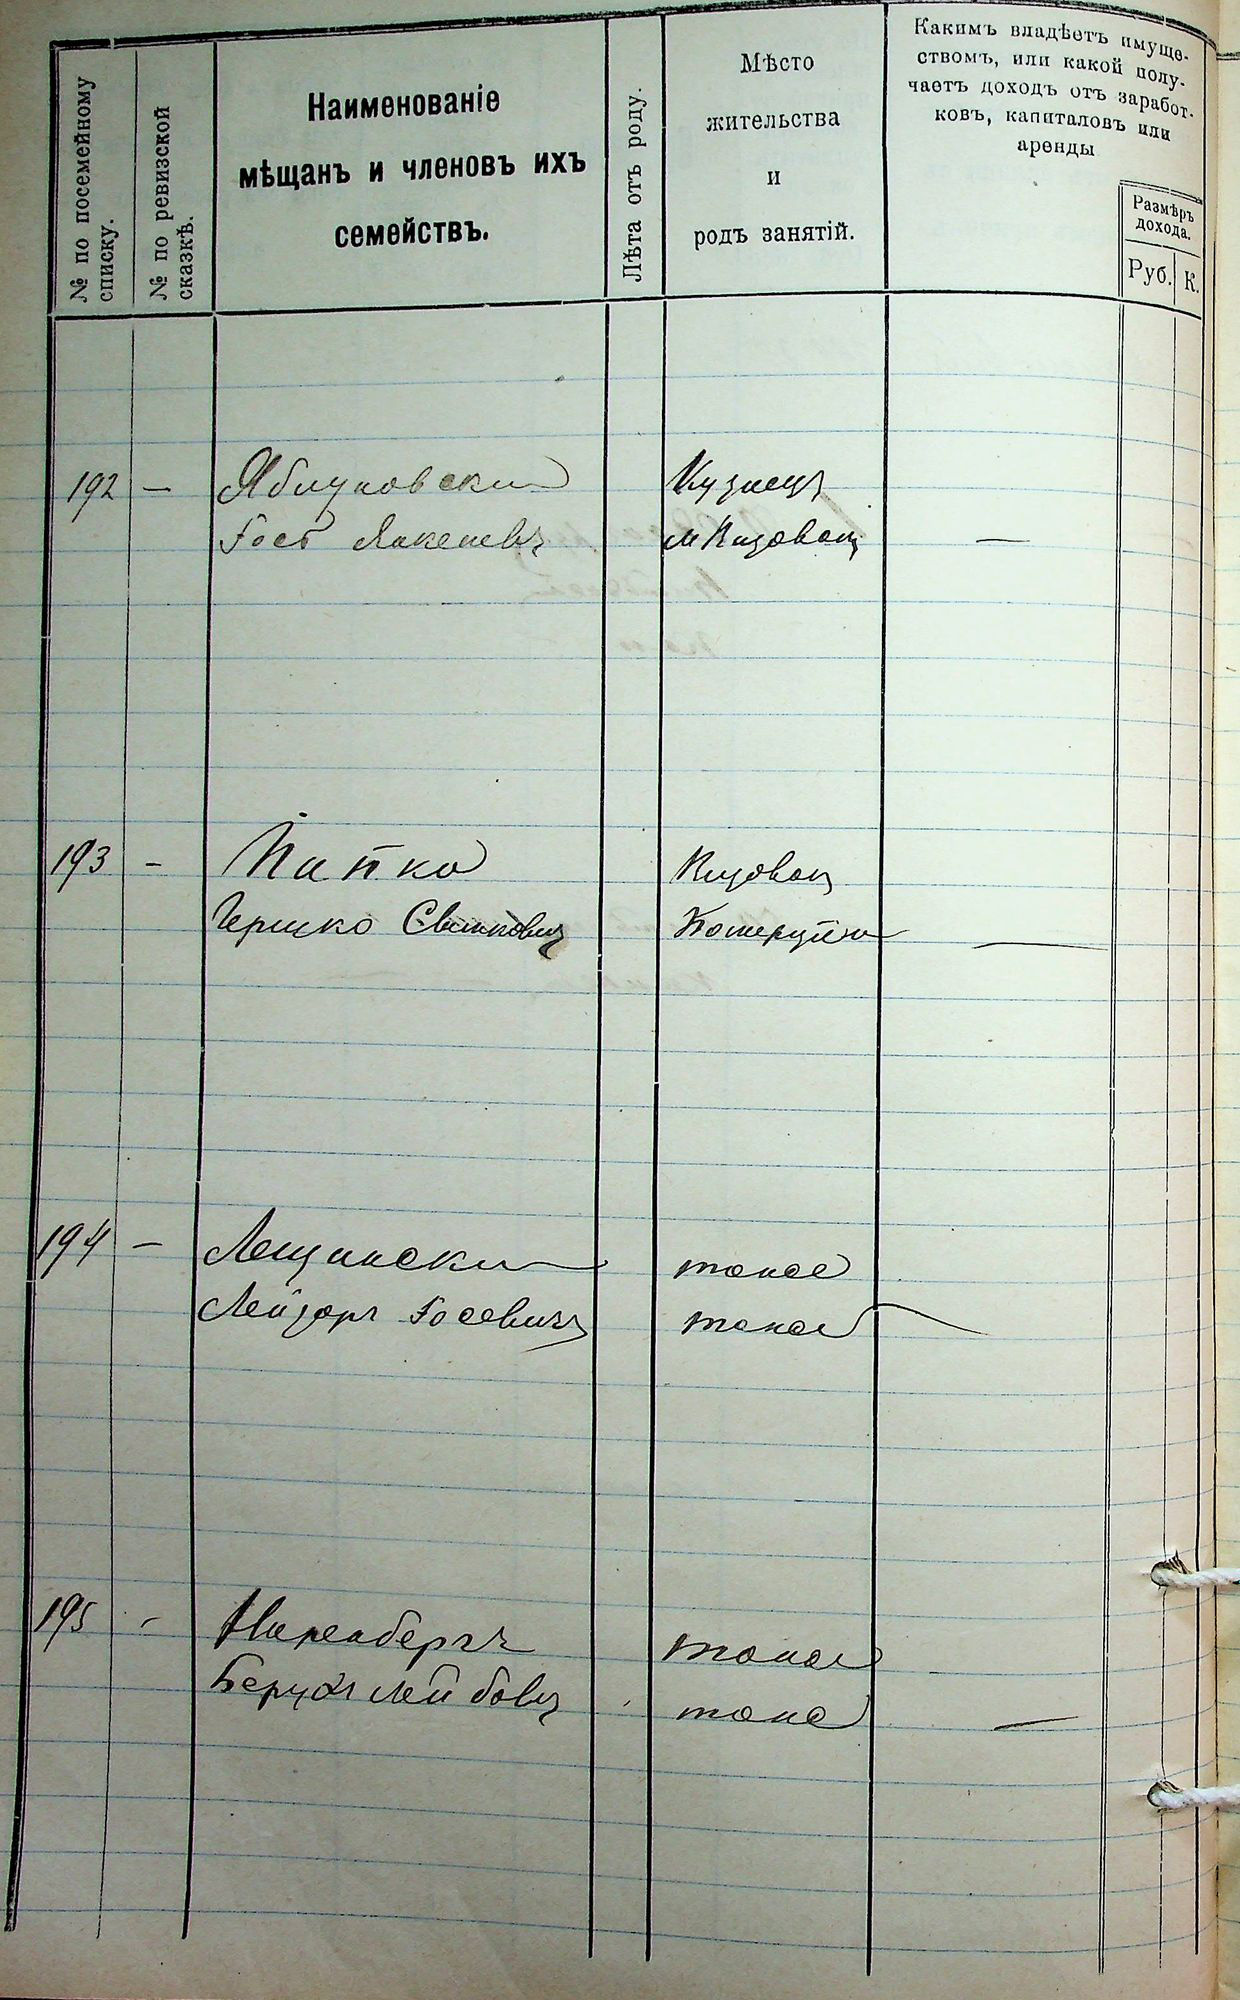 № по посемейному
списку.
№ по ревизской
сказкѣ.
Наименованіе
мѣщанъ и членовъ ихъ
семействъ.
Лѣта отъ роду.
Мѣсто
жительства
и
родъ занятій.
Какимъ владѣетъ имуще-
ствомъ, или какой полу-
чаетъ доходъ отъ заработ-
ковъ, капиталовъ или
аренды
Размѣръ
дохода.
Руб.
К.
192 — Яблуновски Кузнецъ
м —
193 — Папко
Гершко —
194 — Лещински тоже
Лейзоръ Іосевичъ тоже
195 - Ниренбергъ тоже
Берухъ Лейбовъ тоже —